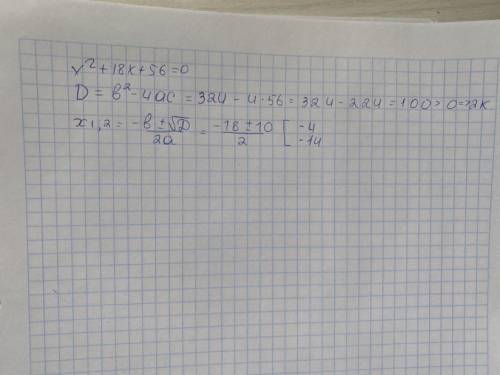 x² + 18x + 56 = 0
D = b² - 4ac = 324 - 4·56 = 324 - 224 = 100 > 0 => 2к
x₁,₂ = (-b ± √D)/2a = (-18 ± 10)/2 [ -4 -14